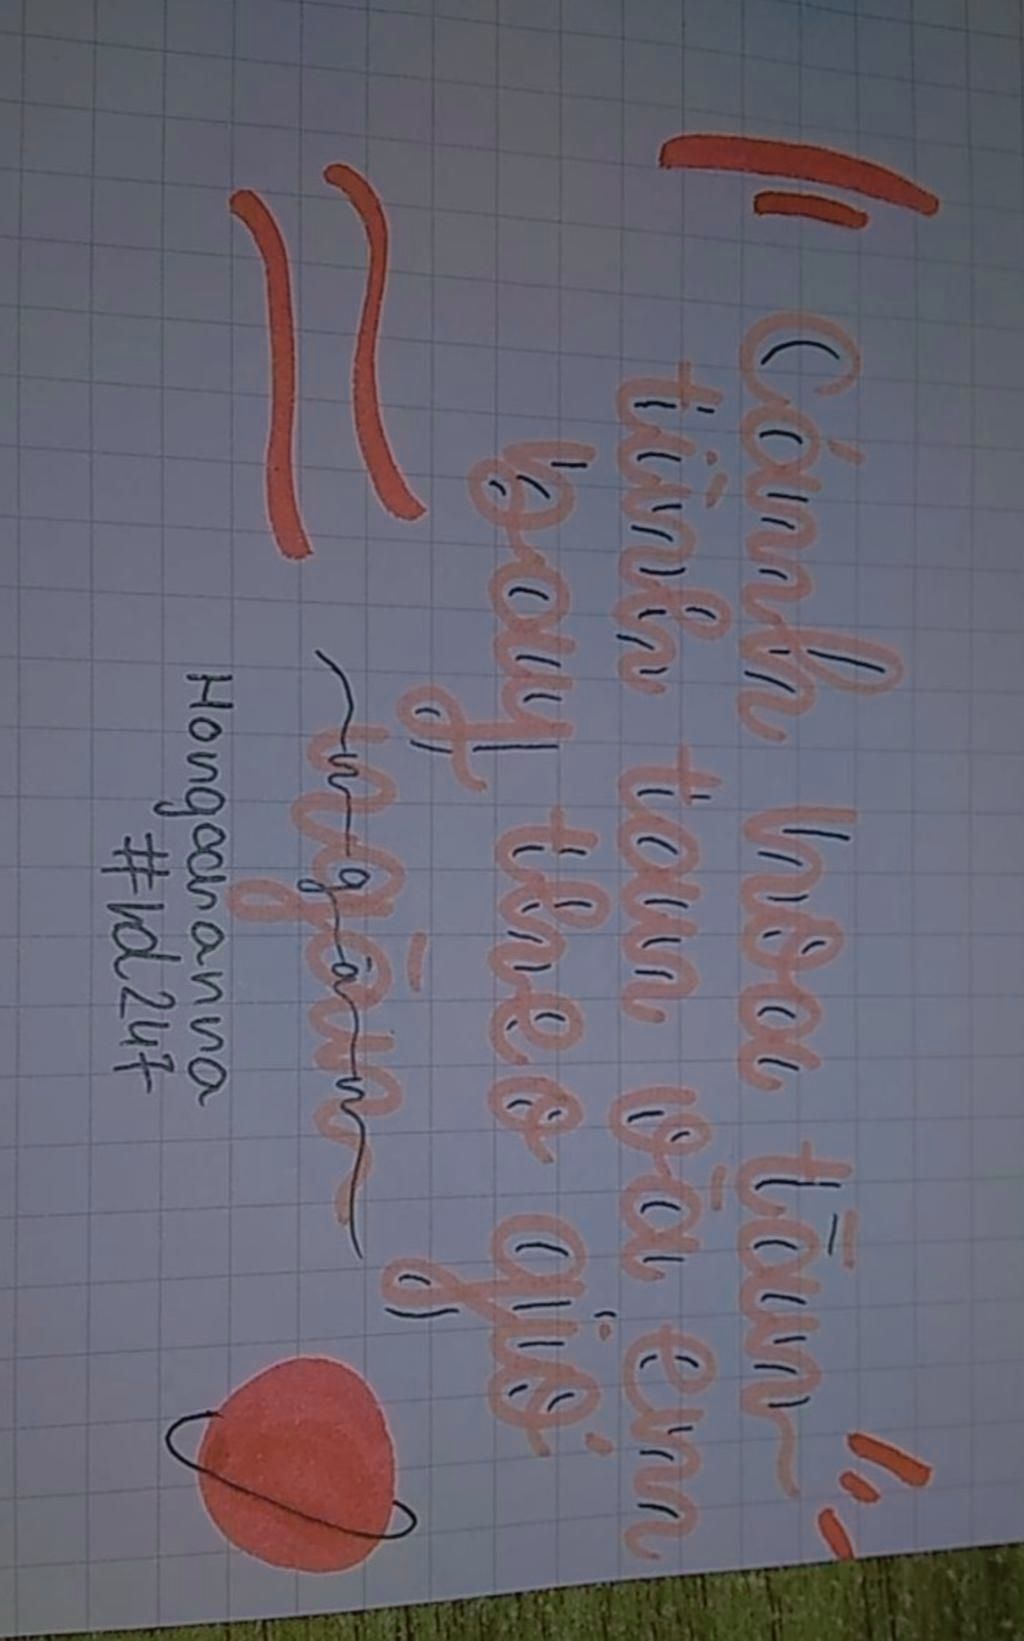 Cánh hoa tàn
tình tan và em
bay theo gió
ngàn
Hongoananna
#hd247